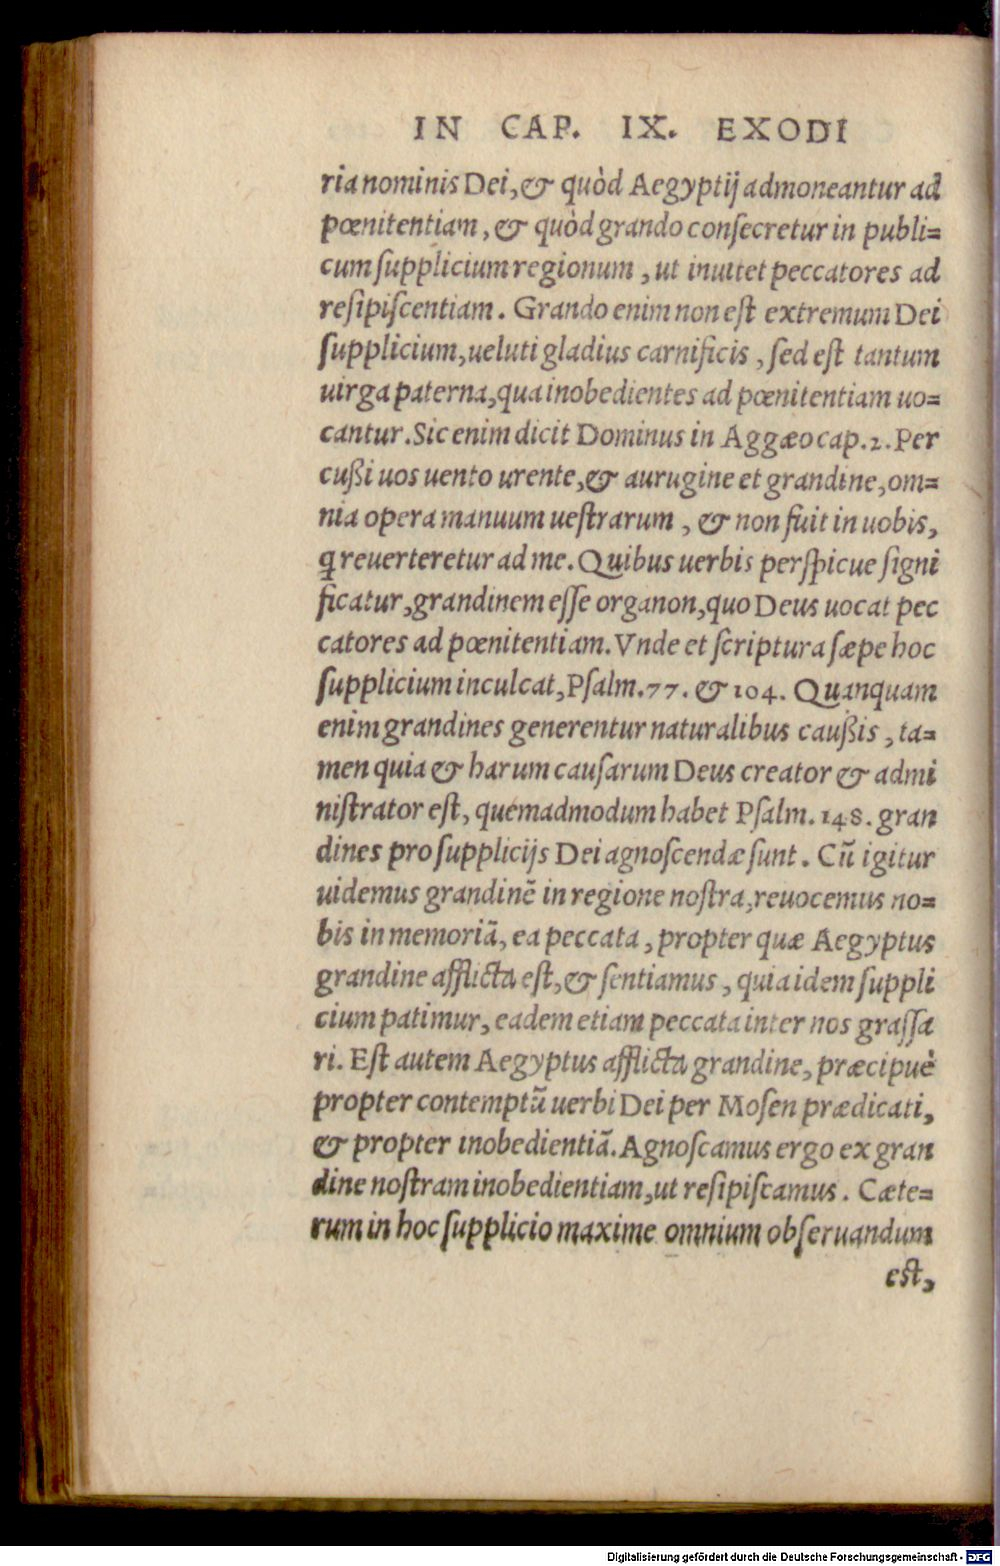 IN CAP. IX. EXODI
ria nominis Dei, & quòd Aegyptij admoneantur ad
pœnitentiam, & quòd grando conſecretur in publi=
cum ſupplicium regionum, ut inuitet peccatores ad
reſipiſcentiam. Grando enim non eſt extremum Dei
ſupplicium, ueluti gladius carnificis, ſed eſt tantum
uirga paterna, qua inobedientes ad pœnitentiam uo=
cantur. Sic enim dicit Dominus in Aggæo cap. 2. Per
cußi uos uento urente, & aurugine et grandine, om=
nia opera manuum ueſtrarum, & non fuit in uobis,
ꝗ reuerteretur ad me. Quibus uerbis perſpicue ſigni
ficatur, grandinem eſſe organon, quo Deus uocat pec
catores ad pœnitentiam. Vnde et ſcriptura ſæpe hoc
ſupplicium inculcat, Pſalm. 77. & 104. Quanquam
enim grandines generentur naturalibus caußis, ta=
men quia & harum cauſarum Deus creator & admi
niſtrator eſt, quemadmodum habet Pſalm. 148. gran
dines pro ſupplicijs Dei agnoſcendæ ſunt. Cũ igitur
uidemus grandinẽ in regione noſtra, reuocemus no=
bis in memoriã, ea peccata, propter quæ Aegyptus
grandine afflicta eſt, & ſentiamus, quia idem ſuppli
cium patimur, eadem etiam peccata inter nos graſſa
ri. Eſt autem Aegyptus afflicta grandine, præcipuè
propter contemptũ uerbi Dei per Moſen prædicati,
& propter inobedientiã. Agnoſcamus ergo ex gran
dine noſtram inobedientiam, ut reſipiſcamus. Cæte=
rum in hoc ſupplicio maxime omnium obſeruandum
eſt,
Digitalisierung gefördert durch die Deutsche Forschungsgemeinschaft - DFG